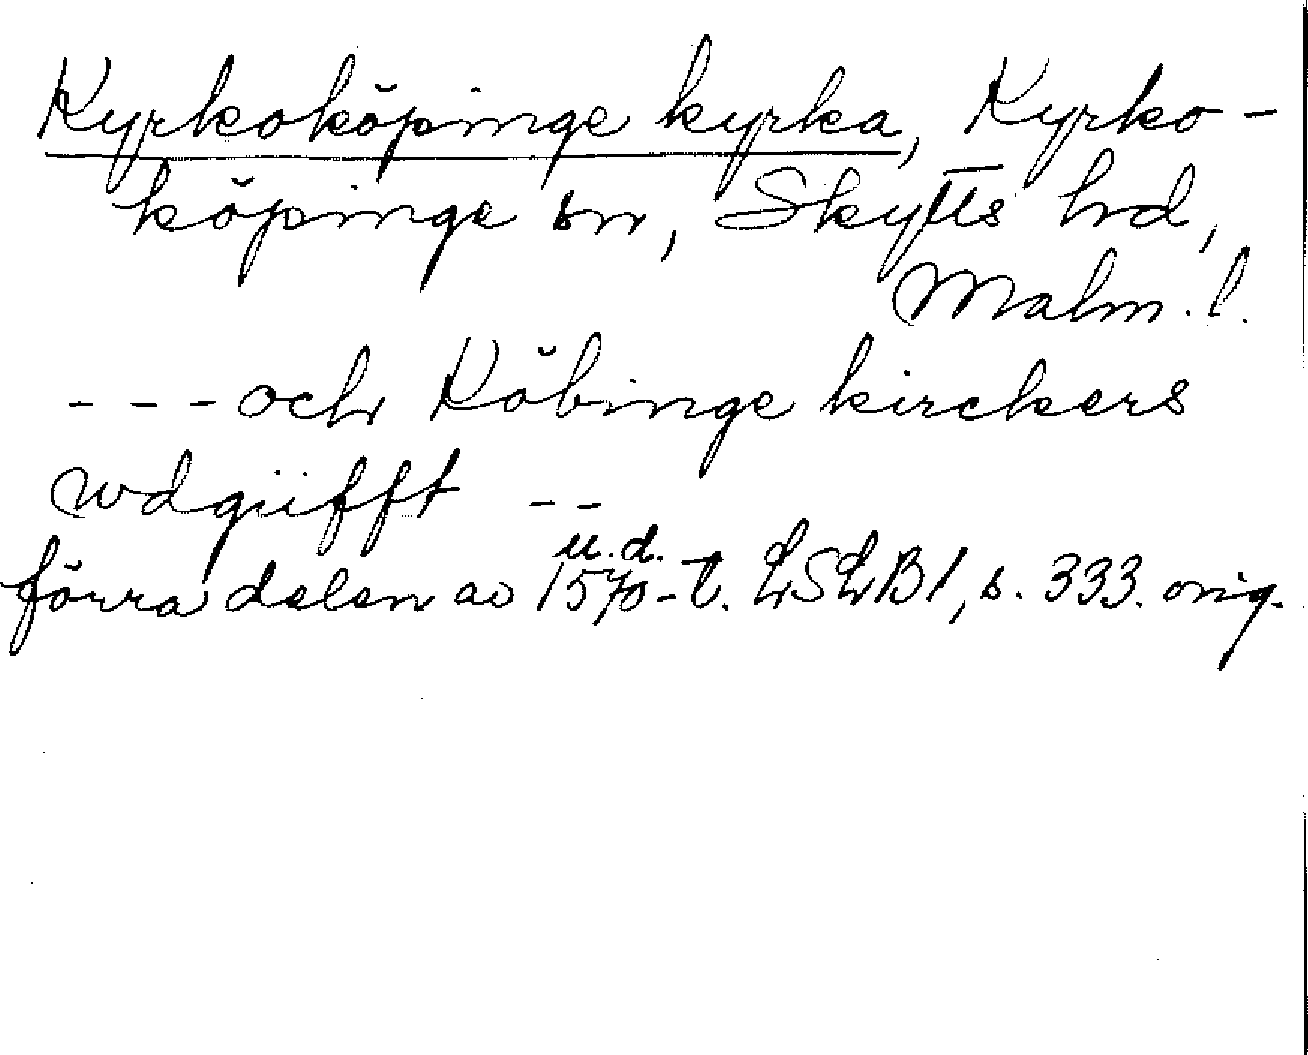 Kyrkoköpinge kyrka, Kyrko-
köpinge sn, Skytts hd,
Malm. l.
--- och Köbinge kirckers
wdgiifft --
u.d.
förra delen av 1570-t. LSLB1, s. 333. orig.